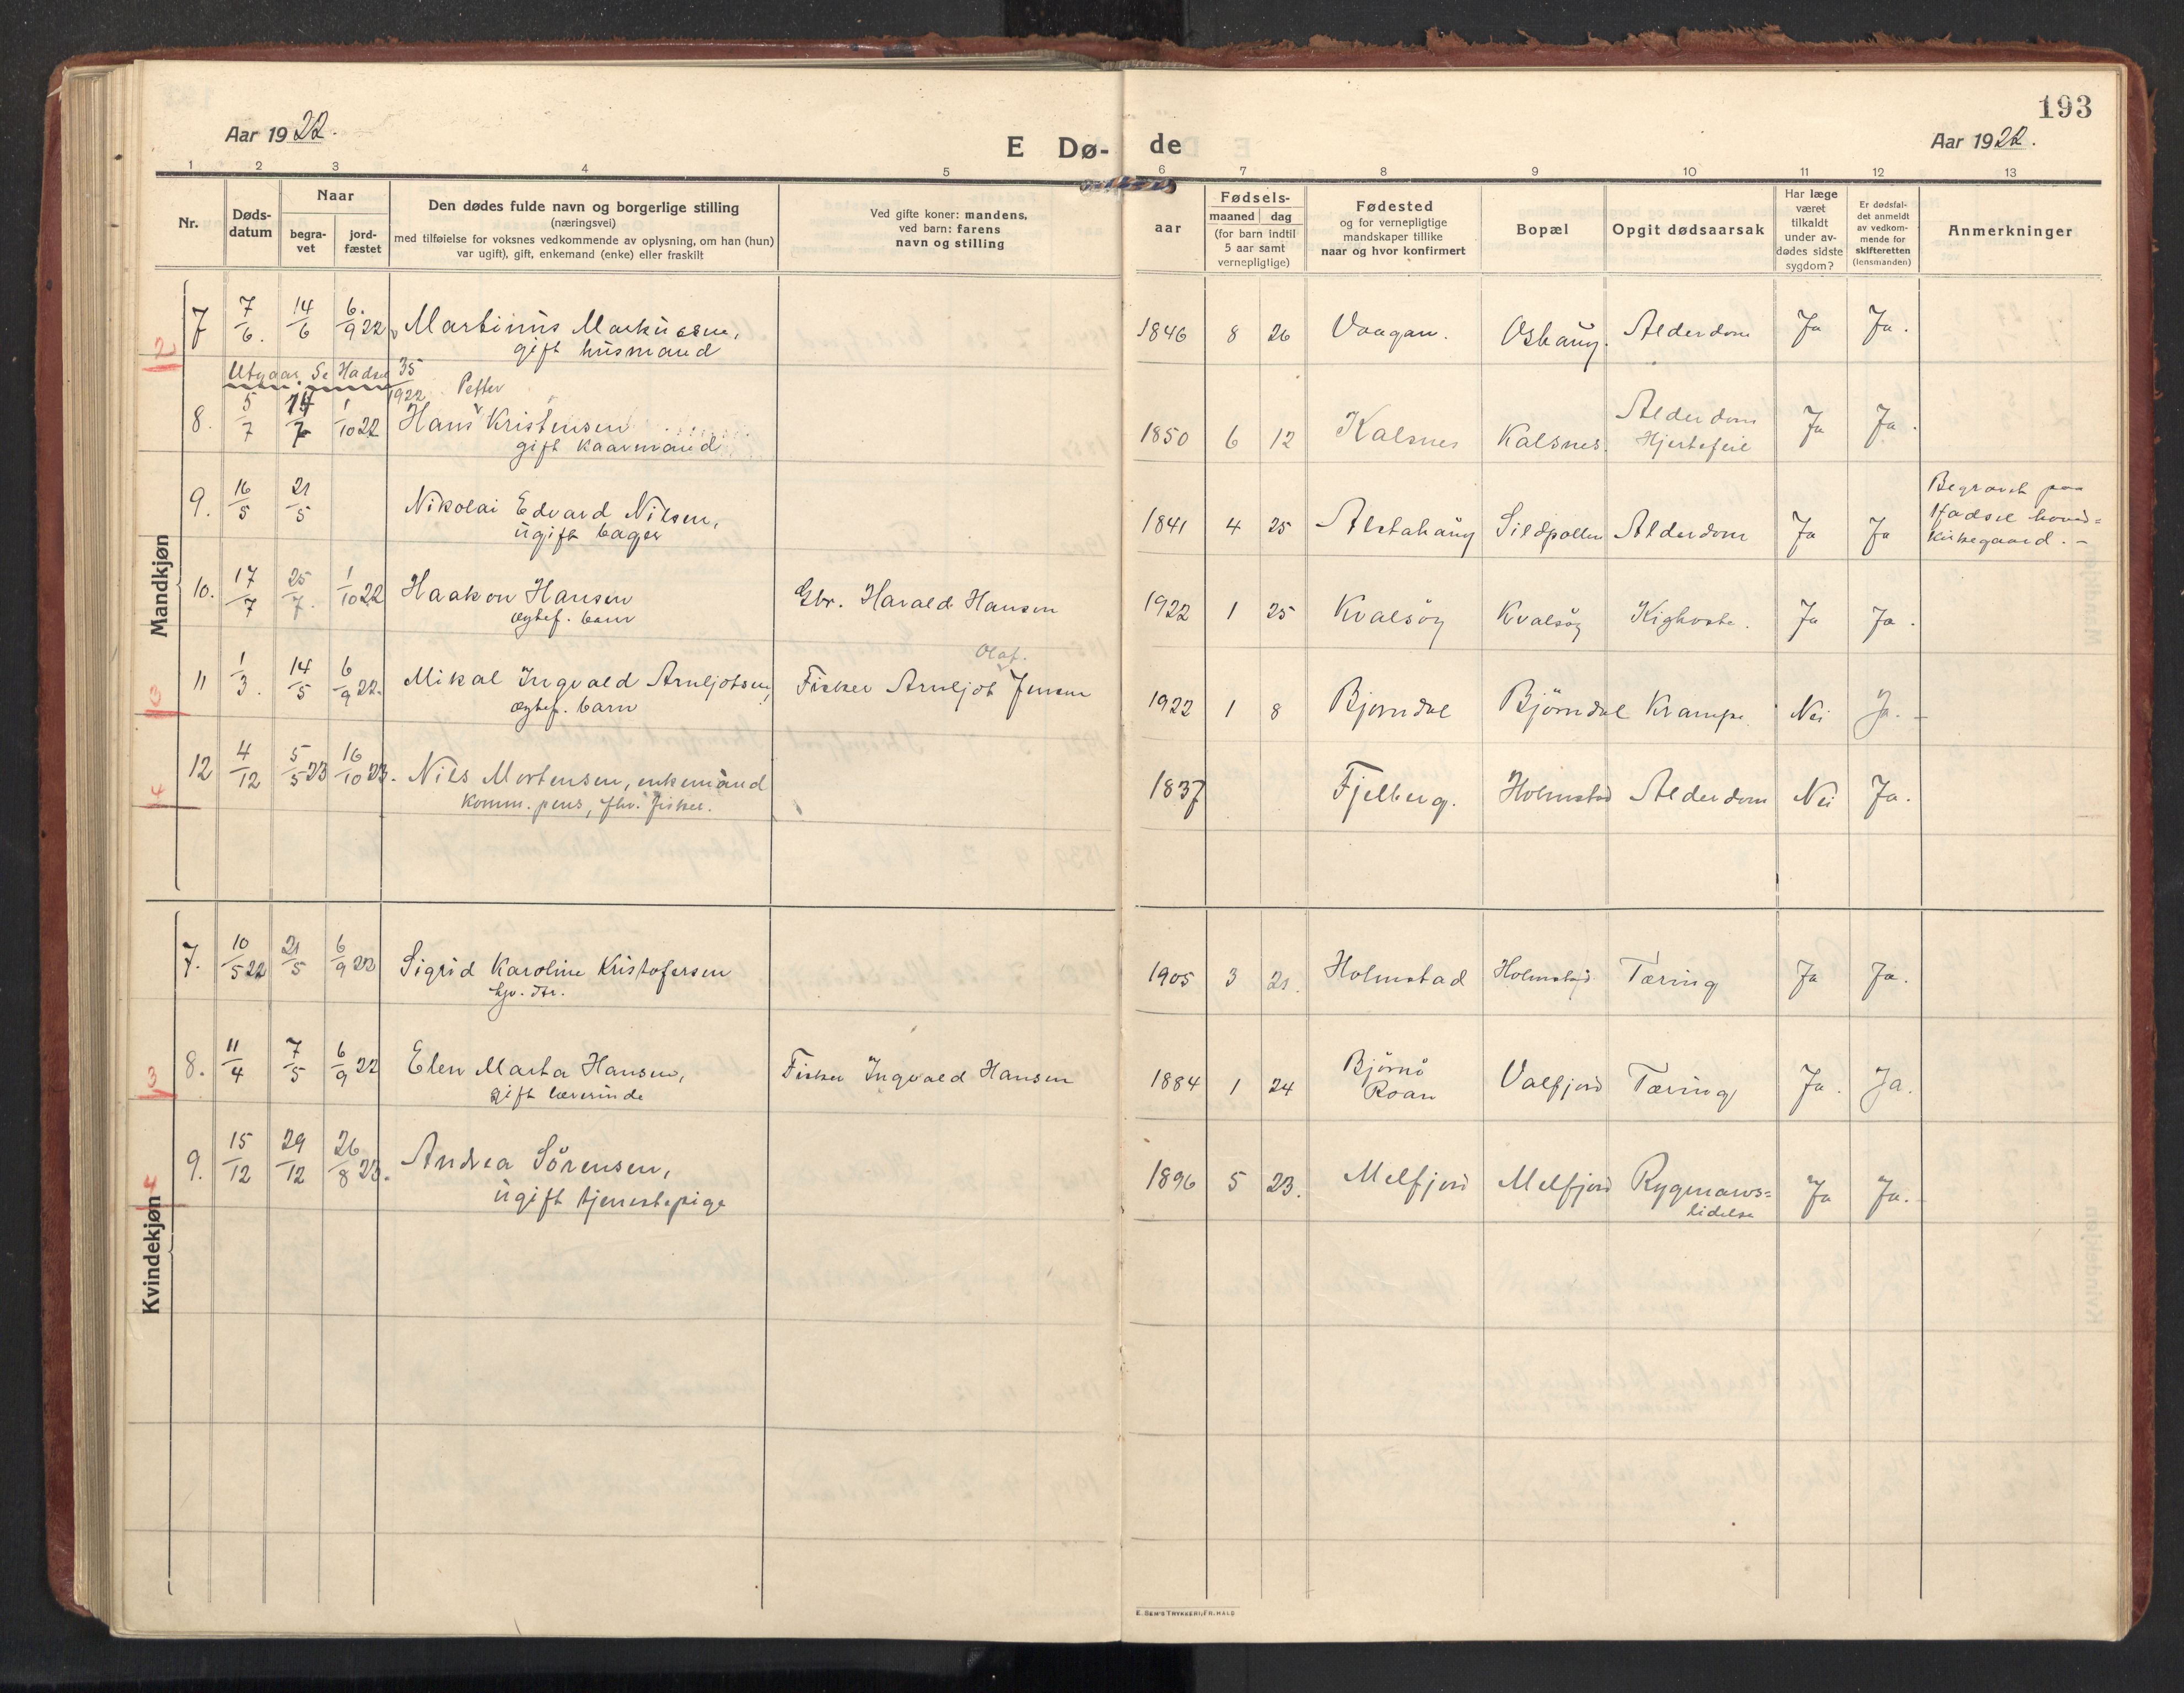 193
Aar 1922.
E Dø-
de
Aar 1922.
1 2 3 4 5 6 7 8 9 10 11 12 13
Nr.
Døds-
datum
Naar
begra-
vet
jord-
fæstet
Den dødes fulde navn og borgerlige stilling
(næringsvei)
med tilføielse for voksnes vedkommende av oplysning, om han (hun)
var ugift), gift, enkemand (enke) eller fraskilt
Ved gifte koner: mandens,
ved barn: farens
navn og stilling
aar
Fødsels-
maaned dag
(for barn indtil
5 aar samt
vernepligtige)
Fødested
og for vernepligtige
mandskaper tillike
naar og hvor konfirmert
Bopæl
Opgit dødsaarsak
Har læge
været
tilkaldt
under av-
dødes sidste
sygdom?
Er dødsfal-
det anmeldt
av vedkom-
mende for
skifteretten
(lensmanden)
Anmerkninger
Mandkjøn
7 7/6. 14/6 6./9 22 Martinus Markussen, 1846 8 26 Vaagan. Oshaug. Alderdom Ja Ja.
gift husmand
2
Utgaar. Se Hadsel 35/1922
Petter
8. 5/7 14/7 1/10 22 Hans Kristensen 1850 6 12 Kalsnes Kalsnes. Alderdom Ja Ja.
gift kaarmand Hjertefeil
9. 16/5 21/5 Nikolai Edvard Nilsen, 1841 4 25 Alstahaug Sildpollen Alderdom Ja Ja
ugift bager
Begravet paa
Hadsel hoved=
kirkegaard. -
10. 17/7 25/7. 1/10 22 Haakon Hansen Gbr. Harald Hansen 1922 1 25 Kvalsöy Kvalsöy Kighoste. Ja Ja.
ægtef. barn
Olaf.
11 1/3. 14/5 6/9 22. Mikal Ingvald Arnljotsen, Fisker Arnljot Jensen 1922 1 8 Bjørndal Björndal Krampe. Nei Ja. -
ægtef. barn
3
12 4/12 5/5 23 16/10 23. Nils Mortensen, enkemand 1837 Fjelberg. Holmstad Alderdom Nei Ja.
Komm. pens, fhv. fisker.
4
Kvindekjøn
7. 10/5 22 21/5 6/9 23 Sigrid Karoline Kristofersen 1905 3 21. Holmstad Holmstad Tæring Ja Ja.
hjv. dtr.
8. 11/4 7/5 6/9 22 Elen Marta Hansen, Fisker Ingvald Hansen 1884 1 24 Björnö Valfjord Tæring Ja. Ja.
gift lærerinde Roan
3
9. 15/12 29/12 26/8 23. Andrea Sörensen, 1896 5 23. Melfjord Melfjord Rygmarvs= Ja Ja.
ugift tjenestepige lidelse
4
E. SEM'S TRYKKERI, FR. HALD